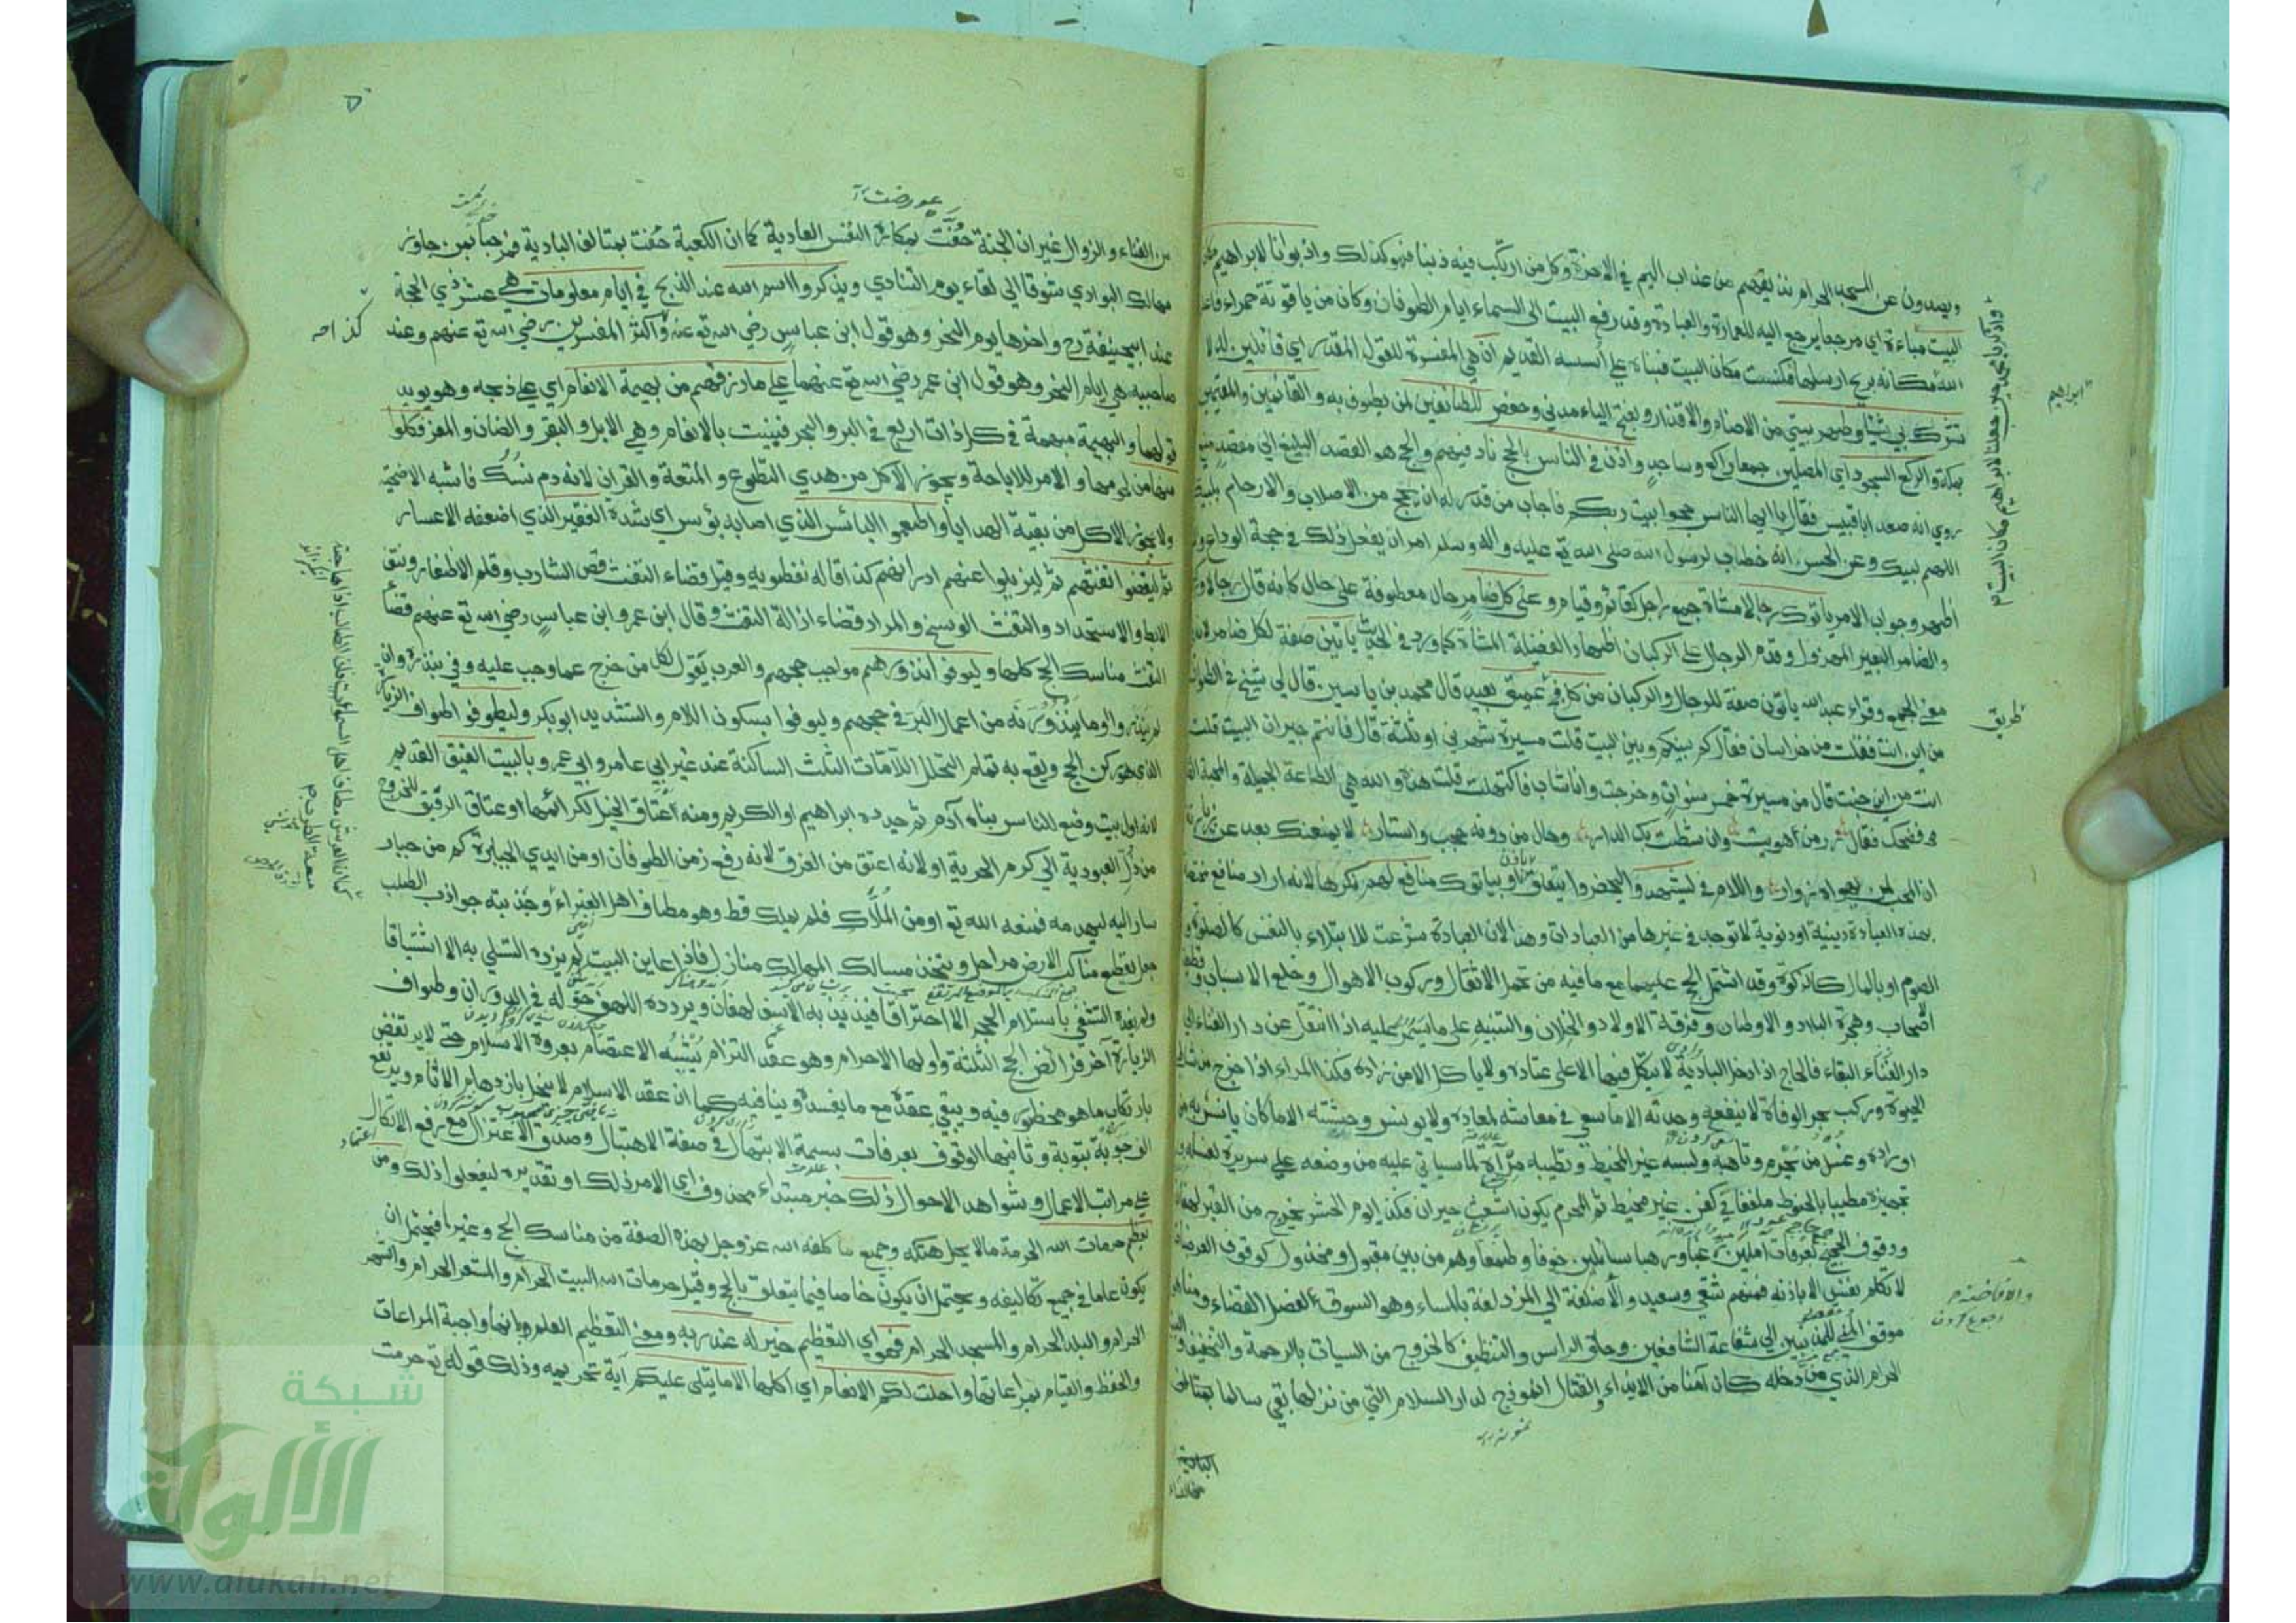 ويصدون عن المسجد الحرام نذيقهم من عذاب اليم في الاخرة وكل من ارتكب فيه ذنبا فهو كذلك واذ بوأنا لابراهيم مكان
البيت مباءة اي مرجعا يرجع اليه للعمارة والعبادة وقد رفع البيت الى السماء ايام الطوفان وكان من ياقوتة حمراء فاعلم
الله مكانه بريح ارسلها فكنست مكان البيت فبناه على أسسه القديم ان هي المفسرة للقول المقدر اي قائلين له لا
تشرك بي شيئا وطهر بيتي من الاصنام والاقذار وبفتح الياء مدني وحفص للطائفين لمن يطوف به والقائمين والمقيمين
بمكة والركع السجود اي المصلين جمعا راكع وساجد واذن في الناس بالحج ناد فيهم والحج هو القصد البليغ الى مقصد منيع
روي انه صعد ابا قبيس فقال يا ايها الناس حجوا بيت ربكم فاجاب من قدر له ان يحج من الاصلاب والارحام بلبيك
اللهم لبيك وعن الحسن انه خطاب لرسول الله صلى الله تع عليه واله وسلم امر ان يفعل ذلك في حجة الوداع و
أظهر وجواب الامر ياتوك رجالا مشاة جمع راجل كقائم وقيام وعلى كل ضامر حال معطوفة على حال كانه قال رجالا و
والضامر البعير المهزول وقدم الرجال على الركبان اظهارا لفضيلة المشاة كما ورد في الحديث ياتين صفة لكل ضامر لانه
معنى الجمع وقراء عبد الله ياتون صفة للرجال والركبان من كل فج عميق بعيد قال محمد بن ياسين قال لي شيخ في الطواف
من اين انت فقلت من خراسان فقال كم بينكم وبين البيت قلت مسيرة شهرين او ثلثة قال فانتم جيران البيت فقلت
انت من اين جئت قال من مسيرة خمس سنوات وخرجت وانا شاب فاكتهلت قلت هذه والله هي الطاعة الجميلة والمحبة
فضحك فقال زر من هويت وان شطت بك الدار وحال من دونه حجب واستار لا يمنعنك بعد عن زيارته
ان المحب لمن يهواه زوار واللام في ليشهدوا ليحضروا يتعلق باذن او بياتوك منافع لهم نكرها لانه اراد منافع مختصة
بهذه العبادة دينية او دنيوية لا توجد في غيرها من العبادات وهذا لان العبادة شرعت للابتلاء بالنفس كالصلوة و
الصوم او بالمال كالزكوة وقد اشتمل الحج عليهما مع ما فيه من تحمل الاثقال وركوب الاهوال وخلع الاسباب وقطيعة
اصحاب وهجرة البلاد والاوطان وفرقة الاولاد والخلان والتنبيه على ما يستمر عليه اذا انتقل عن دار الفناء الى
دار البقاء فالحاج اذا دخل البادية لا يتكل فيها الا على عتاده ولا ياكل الا من زاده فكذا المراء اذا خرج من شاطئ
الحيوة وركب بحر الوفاة لا ينفعه وحدته الا ما سعى في معاشه لمعاده ولا يونس وحشته الا ما كان يانس به من
اوراده وغسل من يحرم وتاهبه ولبسه غير المخيط وتطيبه مرآة لما سياتي عليه من وضعه على سريره لغسله و
تجهيزه مطيبا بالحنوط ملففا في كفن غير مخيط ثم المحرم يكون اشعث حيران فكذا يوم الحشر يخرج من القبر لهفان
ووقوف الحجيج بعرفات آملين رغبا ورهبا سائلين خوفا وطمعا وهم من بين مقبول ومخذول كوقوف العرصات
لا تكلم نفس الا باذنه فمنهم شقي وسعيد والافاضة الى المزدلفة بالمساء وهو السوق لفصل القضاء ومنى هو
موقف المنى للمذنبين الى شفاعة الشافعين وحلق الراس والتنظيف كالخروج من السيات بالرحمة والتخفيف و
الحرام الذي من دخله كان آمنا من الايذاء والقتال انموذج لدار السلام التي من نزلها بقي سالما
واذكر يا محمد حين جعلنا لابراهيم مكان البيت
ابراهيم
طريق
والافاضة
من الفناء والزوال غير ان الجنة حفت بمكاره النفس العادية كما ان الكعبة حفت بمتالف البادية فمرحبا بمن جاوز
مهالك البوادي شوقا الى لقاء يوم التنادي ويذكروا اسم الله عند الذبح في ايام معلومات هي عشر ذي الحجة
عند ابي حنيفة رح واخرها يوم النحر وهو قول ابن عباس رضي الله تع عنه واكثر المفسرين رضي الله تع عنهم وعند
صاحبيه هي ايام النحر وهو قول ابن عمر رضي الله تع عنهما على ما رزقهم من بهيمة الانعام اي على ذبحه وهو يويد
قولهما والبهيمة مبهمة في كل ذات اربع في البر والبحر فبينت بالانعام وهي الابل والبقر والضان والمعز فكلوا
منها من لحومها والامر للاباحة ويجوز الاكل من هدي التطوع والمتعة والقران لانه دم نسك فاشبه الاضحية
ولا يجوز الاكل من بقية الهدايا واطعموا البائس الذي اصابه بؤس اي شدة الفقير الذي اضعفه الاعسار
ثم ليقضوا تفثهم ثم ليزيلوا عنهم ادرانهم كذا قاله نفطويه وقيل قضاء التفث قص الشارب وقلم الاظفار ونتف
الابط والاستحداد والتفث الوسخ والمراد قضاء ازالة التفث وقال ابن عمر وابن عباس رضي الله تع عنهم قضاء
التفث مناسك الحج كلها وليوفوا نذورهم مواجب حجهم والعرب يقول لكل من خرج عما وجب عليه وفى بنذره وان
لم ينذر او ما ينذرونه من اعمال البر في حجهم وليوفوا بسكون اللام والتشديد ابو بكر وليطوفوا طواف الزيارة
الذي هو ركن الحج ويقع به تمام التحلل اللامات الثلث الساكنة عند غير ابي عامر وابي عمرو بالبيت العتيق القديم
لانه اول بيت وضع للناس بناه آدم ثم جدده ابراهيم او الكريم ومنه اعتاق الخيل لكرائمها وعتاق الرقيق للخروج
من ذل العبودية الى كرم الحرية او لانه اعتق من الغرق لانه رفع زمن الطوفان او من ايدي الجبابرة كم من جبار
سار اليه ليهدمه فمنعه الله تع او من الملاك فلم يملك قط وهو مطاف اهل الغبراء وجذبته جواذب الطلب
جعل يقطع مناكب الارض مراحل ويتخذ مسالك المهالك منازل فاذا عاين البيت لم يزده التسلي به الا اشتياقا
ولم يفده التشفي باستلام الحجر الا احتراقا فيذيد به الاسف لهفان ويردده اللهف حوله في الدوران وطواف
الزيارة آخر فرائض الحج الثلثة واولها الاحرام وهو عقد التزام يشبه الاعتصام بعروة الاسلام حتى لا يرتفض
بارتكاب ما هو محظور فيه ويبقى عقده مع ما يفسده وينافيه كما ان عقد الاسلام لا ينحل بازدحام الاثام ويرتفع
الف حوبة بتوبة وثانيها الوقوف بعرفات بسمة الابتهال في صفة الاهتبال وصدق الاعتزال مع رفع الاتكال
على مراتب الاعمال وشواهد الاحوال ذلك خبر مبتداء محذوف اي الامر ذلك او تقديره ليفعلوا ذلك ومن
يعظم حرمات الله الحرمة ما لا يحل هتكه وجميع ما كلفه الله عز وجل بهذه الصفة من مناسك الحج وغيرها فيحتمل ان
يكون عاما في جميع تكاليفه ويحتمل ان يكون خاصا فيما يتعلق بالحج وقيل حرمات الله البيت الحرام والمشعر الحرام والشهر
الحرام والبلد الحرام والمسجد الحرام فهو اي التعظيم خير له عند ربه ومعنى التعظيم العلم بانها واجبة المراعات
والحفظ والقيام بمراعاتها واحلت لكم الانعام اي اكلها الا ما يتلى عليكم آية تحريمه وذلك قوله تع حرمت
شبكة
الألوكة
www.alukah.net